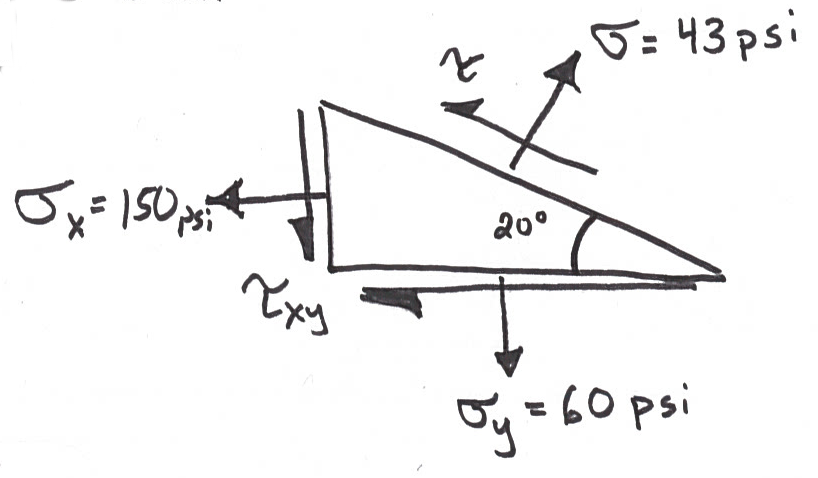 σ = 43 psi
τ
σx = 150 psi
20°
τxy
σy = 60 psi